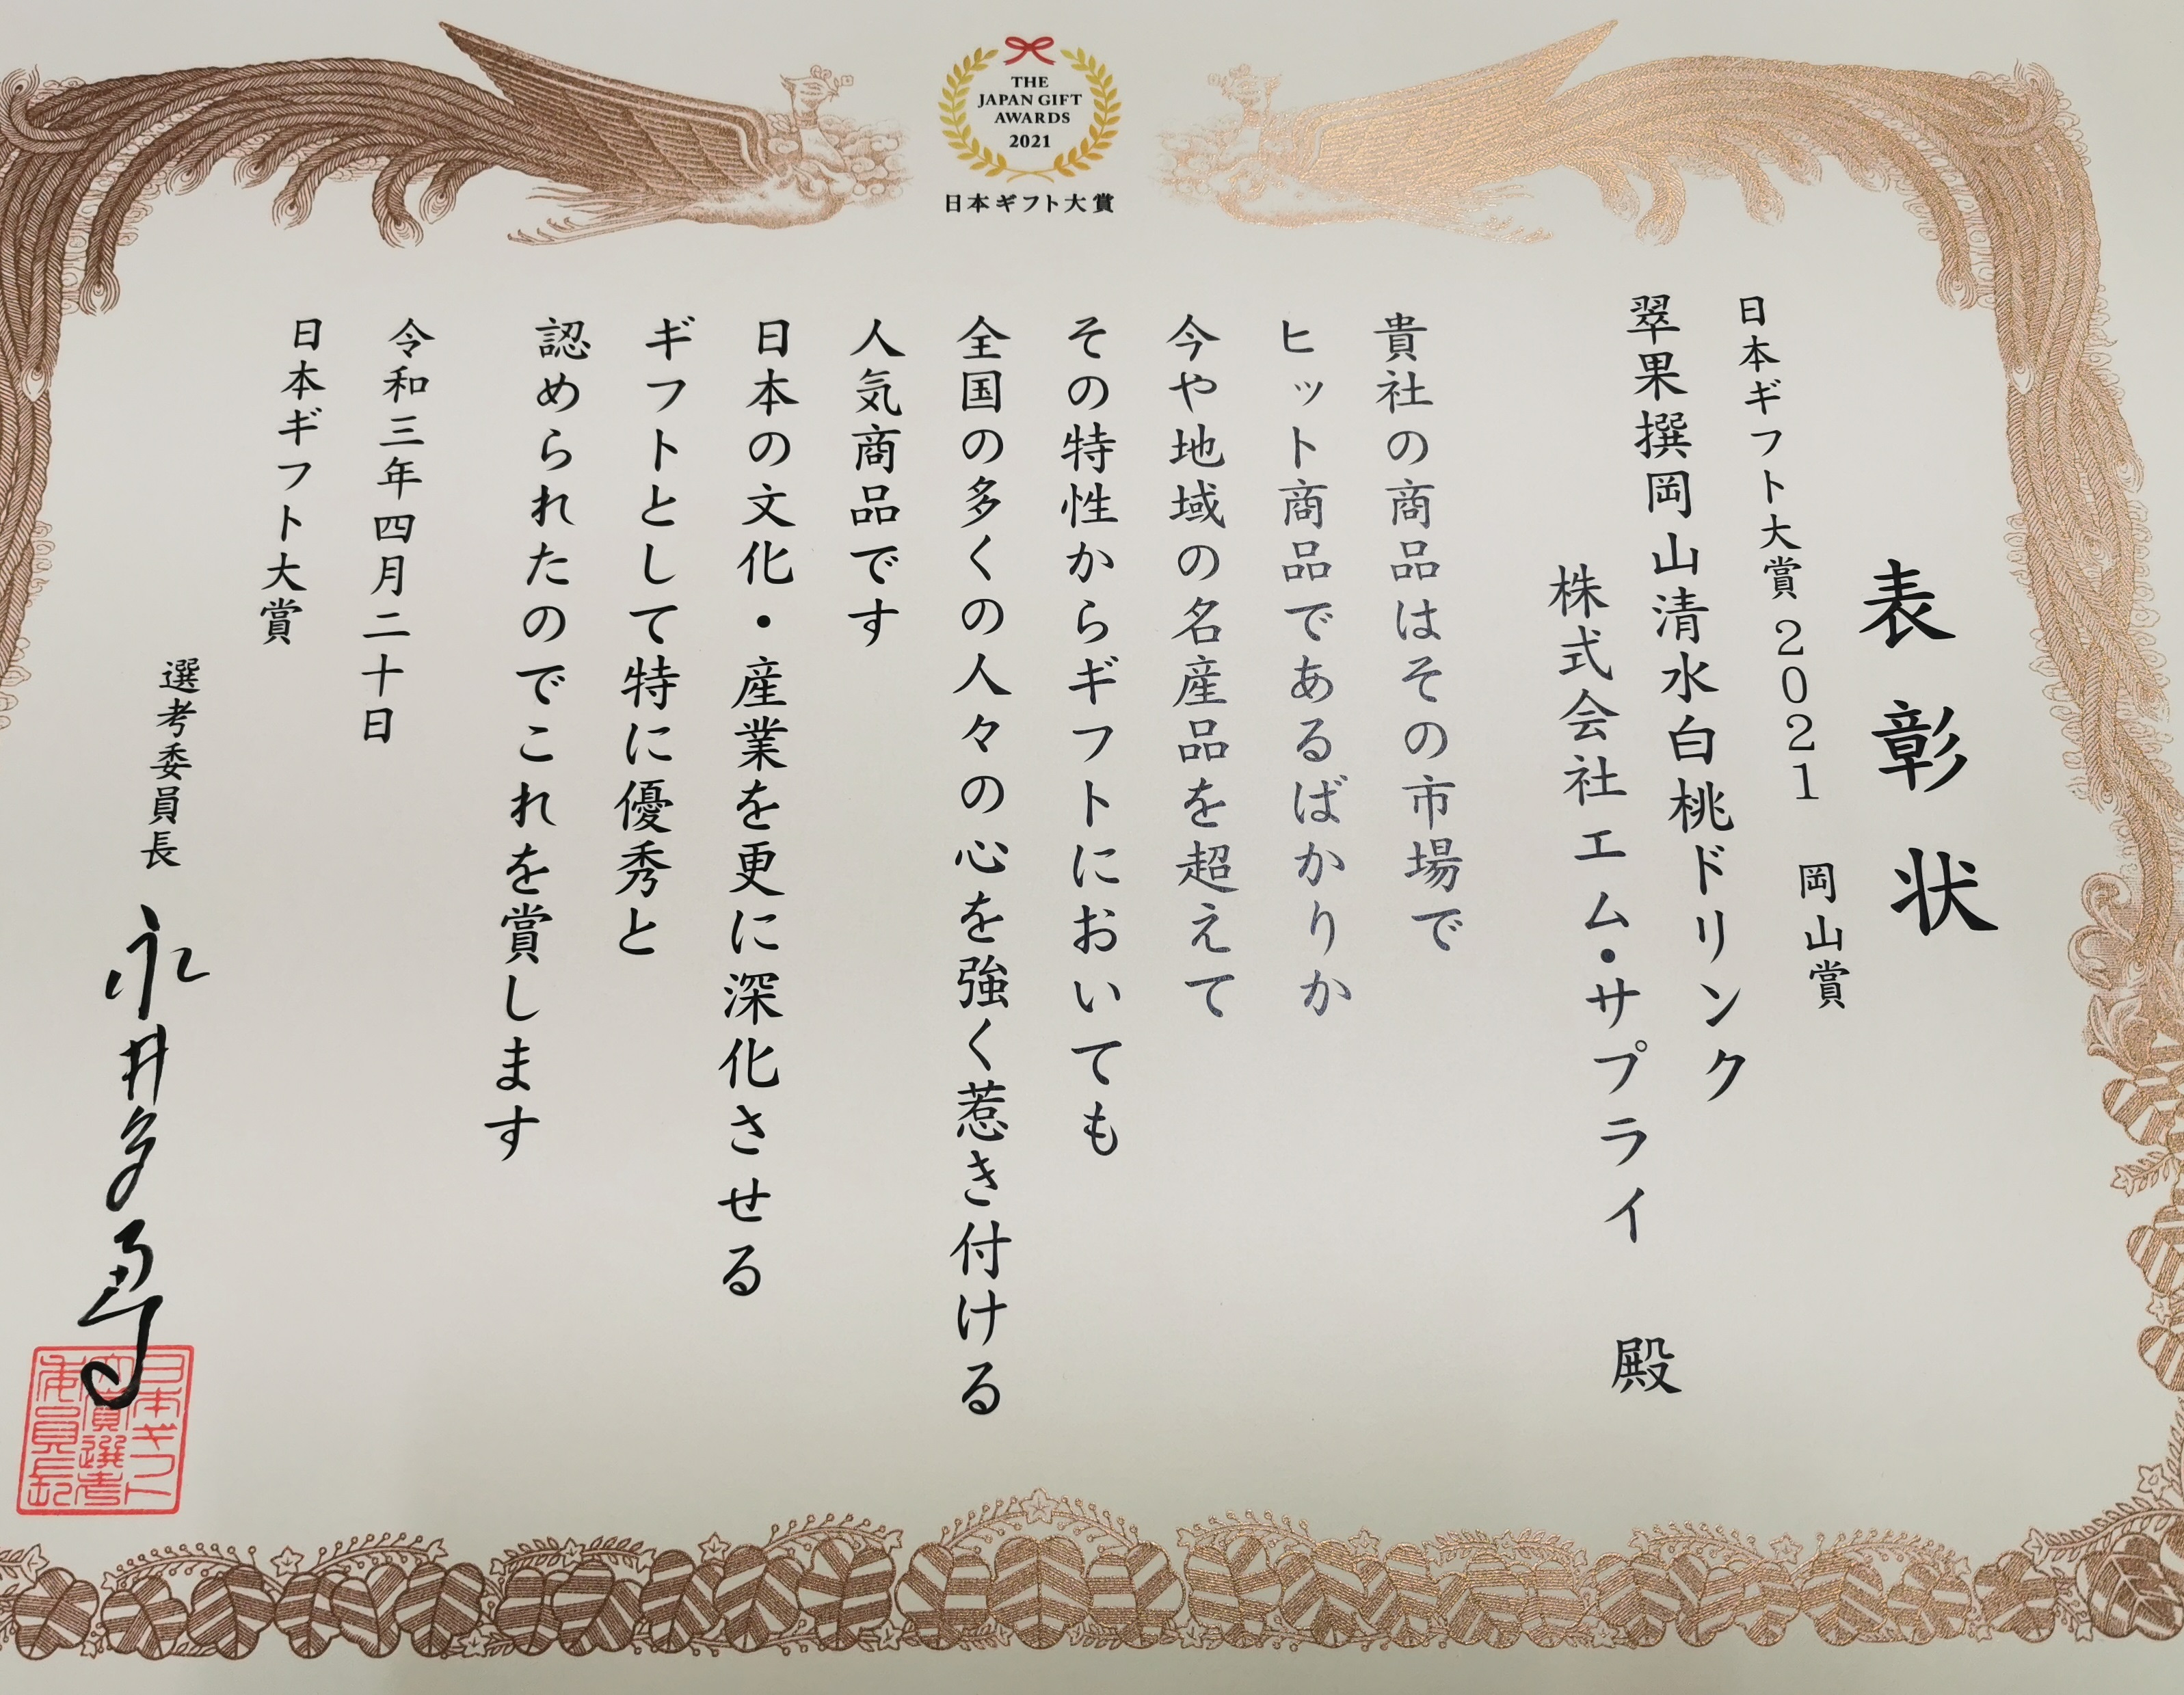 THE
JAPAN GIFT
AWARDS
2021
日本ギフト大賞
表彰状
日本ギフト大賞2021 岡山賞
翠果撰岡山清水白桃ドリンク
株式会社エム・サプライ 殿
貴社の商品はその市場で
ヒット商品であるばかりか
今や地域の名産品を超えて
その特性からギフトにおいても
全国の多くの人々の心を強く惹き付ける
人気商品です
日本の文化・産業を更に深化させる
ギフトとして特に優秀と
認められたのでこれを賞します
令和三年四月二十日
日本ギフト大賞
選考委員長
日本ギフト
大賞選考
委員長